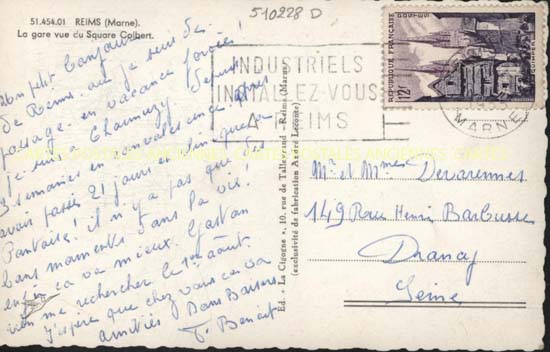 51.454.01 REIMS (Marne).
La gare vue du Square Colbert.
510228 D
INDUSTRIELS
INSTALLEZ-VOUS
A REIMS
MARNE
REPUBLIQUE FRANÇAISE
POSTES
12F
QUIMPER
Un petit bonjour
de Reims où je suis de
passage en vacance forcée!
Je suis à Chaumuzy depuis
3 semaines en convalescence après
avoir passé 21 jours en clinique à
il n'y a pas que des
bons moments dans la vie!
enfin ça va mieux. Gaston
me rechercher le 1er août.
J'espère que chez vous ça va
amitiés Bons Baisers
Benoit
Ed. - La Cigogne, 10, rue de Talleyrand - Reims (Marne)
(exclusivité de fabrication André Leconte)
Mr et Mmes Devarennes
149 Rue Henri Barbusse
Drancy
Seine